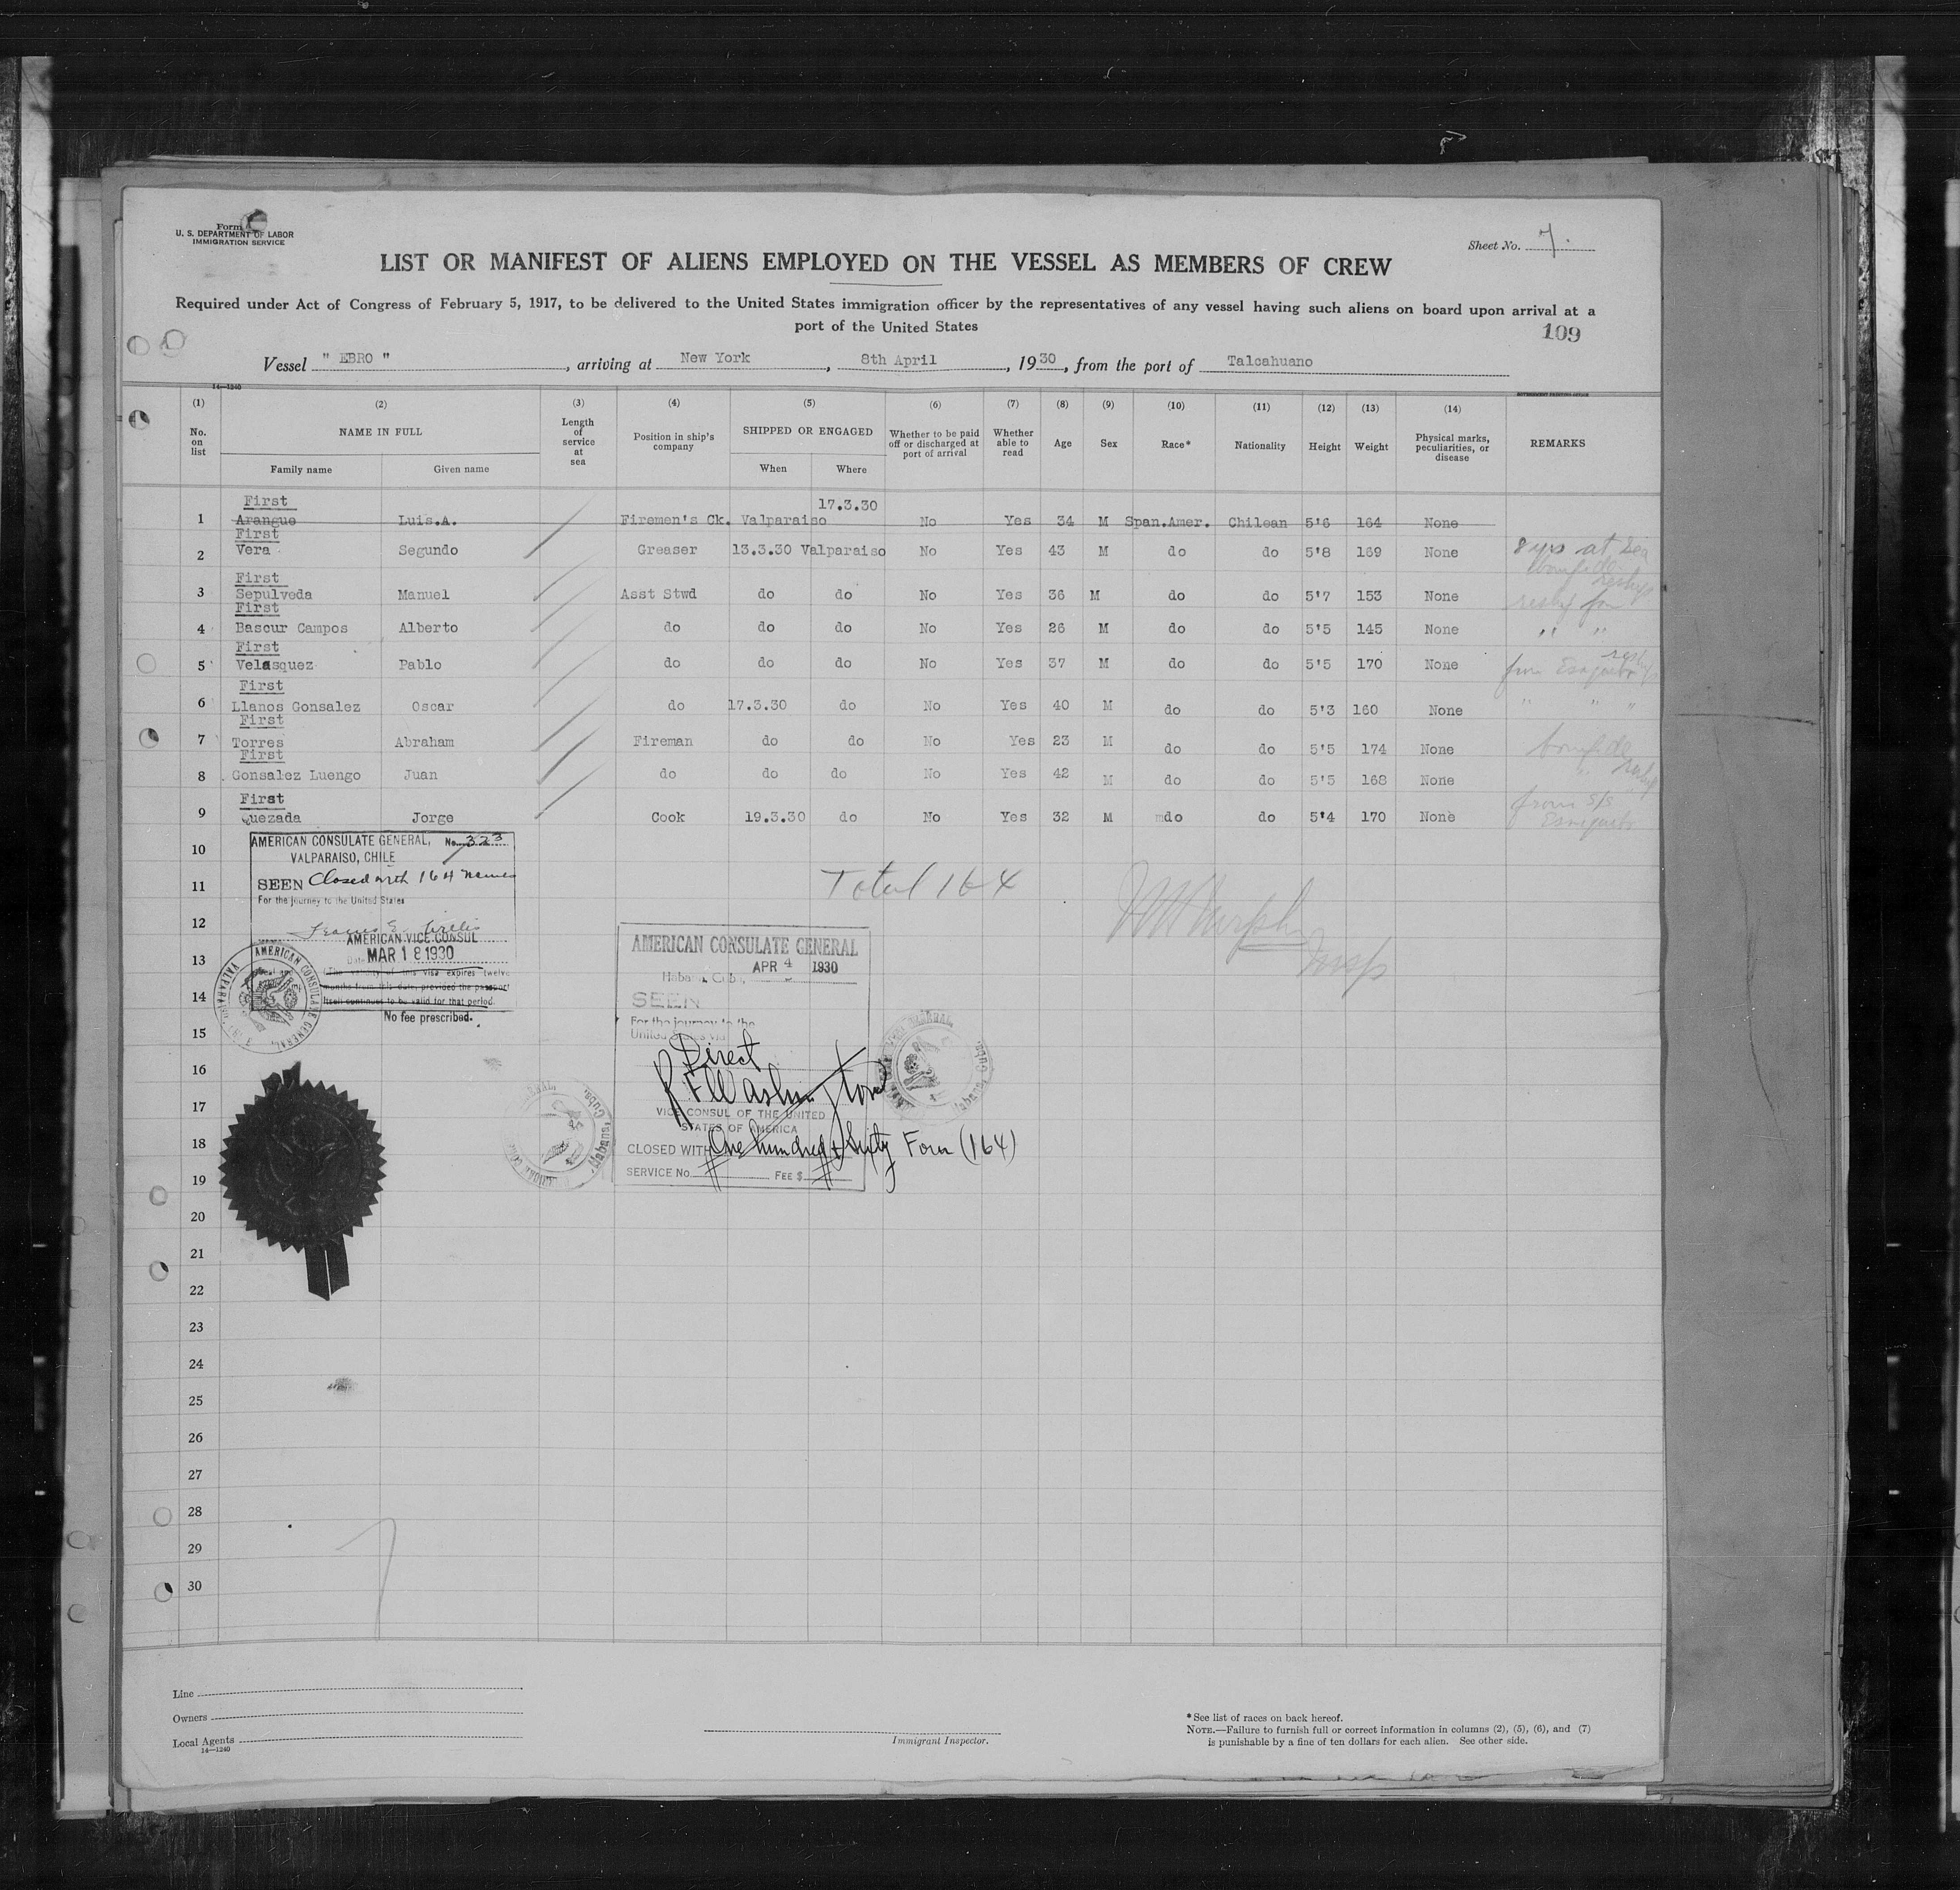 Form
U. S. DEPARTMENT OF LABOR
IMMIGRATION SERVICE
Sheet No. 7.
LIST OR MANIFEST OF ALIENS EMPLOYED ON THE VESSEL AS MEMBERS OF CREW
Required under Act of Congress of February 5, 1917, to be delivered to the United States immigration officer by the representatives of any vessel having such aliens on board upon arrival at a
port of the United States
109
Vessel " EBRO ", arriving at New York, 8th April, 1930, from the port of Talcahuano
14—1240
(1) (2) (3) (4) (5) (6) (7) (8) (9) (10) (11) (12) (13) (14)
No. on list NAME IN FULL Length of service at sea Position in ship's company SHIPPED OR ENGAGED Whether to be paid off or discharged at port of arrival Whether able to read Age Sex Race* Nationality Height Weight Physical marks, peculiarities, or disease REMARKS
Family name Given name When Where
First 17.3.30
1 Arangue Luis.A. Firemen's Ck. Valparaiso No Yes 34 M Span.Amer. Chilean 5'6 164 None
First
2 Vera Segundo Greaser 13.3.30 Valparaiso No Yes 43 M do do 5'8 169 None 8 yrs at Sea
bonfide
First
3 Sepulveda Manuel Asst Stwd do do No Yes 36 M do do 5'7 153 None
First
4 Bascur Campos Alberto do do do No Yes 26 M do do 5'5 145 None " "
First
5 Velasquez Pablo do do do No Yes 37 M do do 5'5 170 None
First
6 Llanos Gonsalez Oscar do 17.3.30 do No Yes 40 M do do 5'3 160 None " " "
First
7 Torres Abraham Fireman do do No Yes 23 M do do 5'5 174 None bonfide
First
8 Gonsalez Luengo Juan do do do No Yes 42 M do do 5'5 168 None "
First
9 Quezada Jorge Cook 19.3.30 do No Yes 32 M do do 5'4 170 None from S/S
10
11
12
13
14
15
16
17
18
19
20
21
22
23
24
25
26
27
28
29
30
AMERICAN CONSULATE GENERAL, No. 323
VALPARAISO, CHILE
SEEN Closed with 164 names
For the journey to the United States
AMERICAN VICE CONSUL
Date MAR 18 1930
(The validity of this visa expires twelve
months from this date, provided the passport
itself continues to be valid for that period.
No fee prescribed.
AMERICAN CONSULATE GENERAL, VALPARAISO
Total 164
Murphy
Insp
AMERICAN CONSULATE GENERAL
APR 4 1930
Habana, Cuba,
SEEN
For the journey to the
United States via
Direct
R F Washington
VICE CONSUL OF THE UNITED
STATES OF AMERICA
CLOSED WITH One hundred & Sixty Four (164)
SERVICE No. FEE $
Habana, Cuba.
Line
Owners
Local Agents
14—1240
Immigrant Inspector.
* See list of races on back hereof.
NOTE.—Failure to furnish full or correct information in columns (2), (5), (6), and (7)
is punishable by a fine of ten dollars for each alien. See other side.